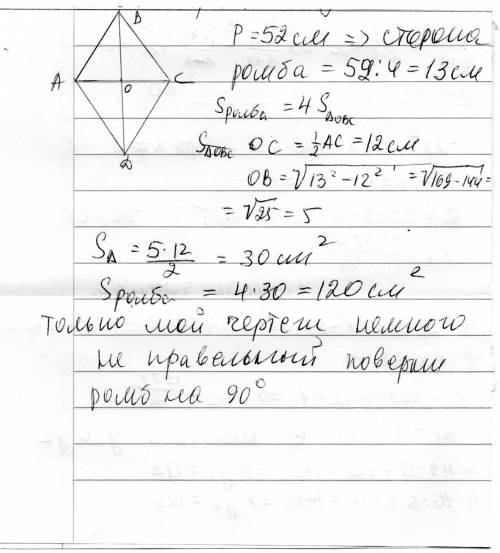 B
A
O
C
D
P = 52 см => сторона
ромба = 52:4 = 13 см
Sромба = 4 S△OBC
S△OBC OC = ½AC = 12 см
OB = √13² - 12² = √169 - 144 =
= √25 = 5
S△ = 5·12/2 = 30 см²
Sромба = 4·30 = 120 см²
только мой чертеш немного
не правельный поверни
ромб на 90°